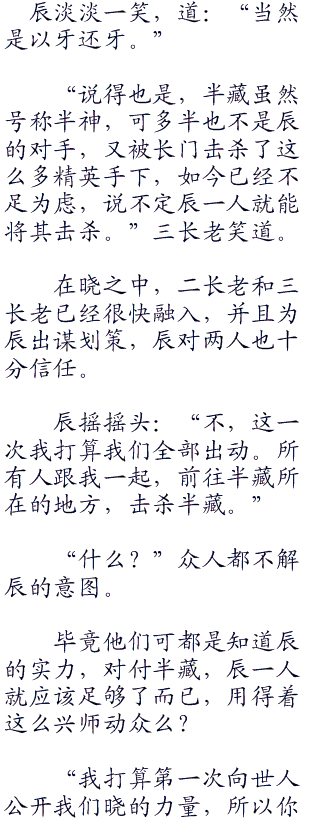 辰淡淡一笑，道：“当然
是以牙还牙。”
“说得也是，半藏虽然
号称半神，可多半也不是辰
的对手，又被长门击杀了这
么多精英手下，如今已经不
足为虑，说不定辰一人就能
将其击杀。”三长老笑道。
在晓之中，二长老和三
长老已经很快融入，并且为
辰出谋划策，辰对两人也十
分信任。
辰摇摇头：“不，这一
次我打算我们全部出动。所
有人跟我一起，前往半藏所
在的地方，击杀半藏。”
“什么？”众人都不解
辰的意图。
毕竟他们可都是知道辰
的实力，对付半藏，辰一人
就应该足够了而已，用得着
这么兴师动众么？
“我打算第一次向世人
公开我们晓的力量，所以你